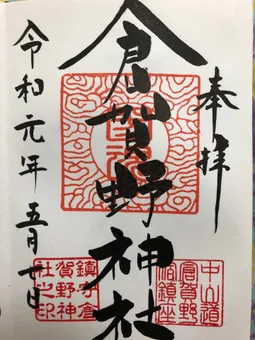 奉拝
倉賀野神社
令和元年五月廿日
中山道
倉賀野
宿鎮座
鎮守倉
賀野神
社之印